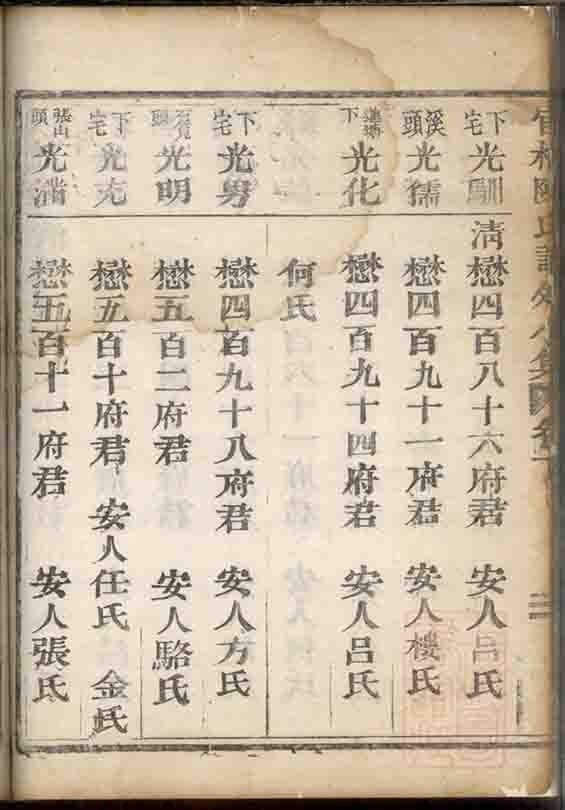 下宅 光馴 清懋四百八十六府君 安人呂氏
溪頭 光儒 懋四百九十一府君 安人樓氏
下 光化 懋四百九十四府君 安人呂氏
何氏
下宅 光勇 懋四百九十八府君 安人方氏
光明 懋五百二府君 安人駱氏
下宅 光充 懋五百十府君 安人任氏 金氏
張山頭 光 懋五百十一府君 安人張氏